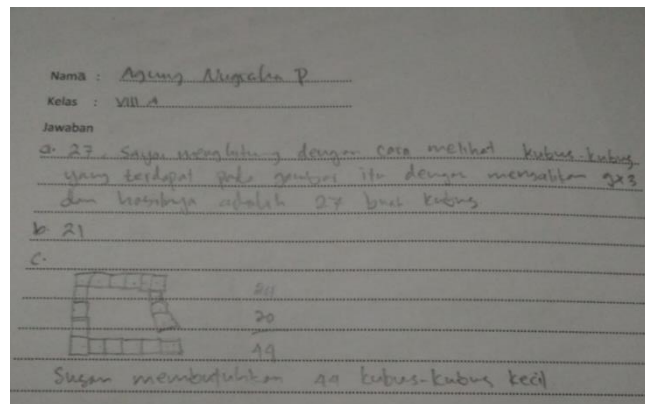 Nama : Agung Nugraha P
Kelas : VIII A
Jawaban
a. 27, Saya menghitung dengan cara melihat kubus-kubus
yang terdapat pada gambar itu dengan mengalikan 9x3
dan hasilnya adalah 27 buah kubus
b. 21
c.
24
20
44
Susan membutuhkan 44 kubus-kubus kecil